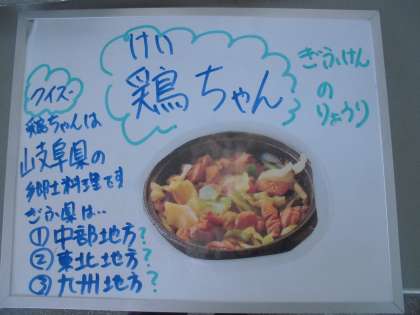 けい
鶏ちゃん
ぎふけん
の
りょうり
クイズ
鶏ちゃんは
岐阜県の
郷土料理です
ぎふ県は…
①中部地方?
②東北地方?
③九州地方?